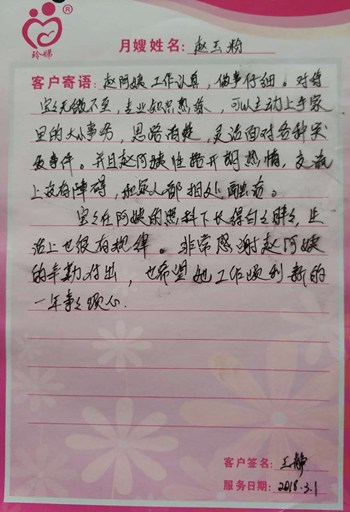 ®
玲娣
月嫂姓名：赵玉粉
客户寄语：赵阿姨工作认真，做事仔细。对待
宝宝无微不至，专业知识熟练，可以主动上手家
里的大小事务，思路清晰，灵活面对各种突
发事件。并且赵阿姨性格开朗热情，交流
上没有障碍，和家人都相处融洽。
宝宝在阿姨的照料下长得白白胖胖，生
活上也很有规律。非常感谢赵阿姨
的辛勤付出，也希望她工作顺利新的
一年事事顺心.
客户签名：王静
服务日期：2018.3.1